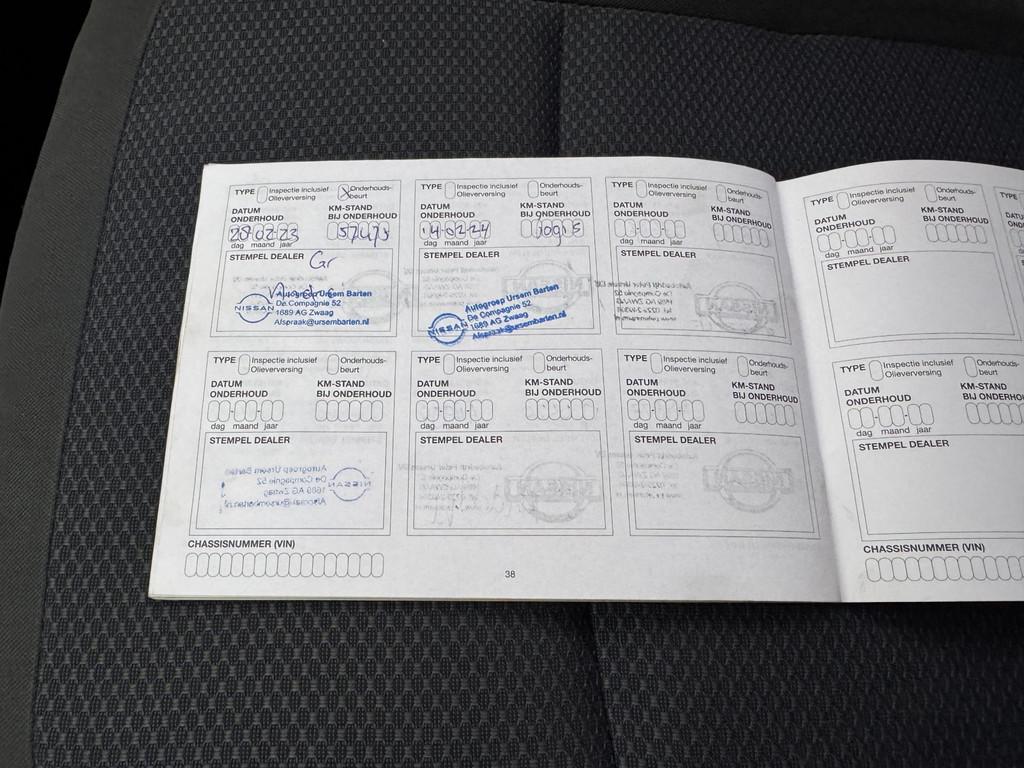 TYPE Inspectie inclusief Olieverversing Onderhouds-beurt
DATUM ONDERHOUD KM-STAND BIJ ONDERHOUD
28-02-23
dag maand jaar
STEMPEL DEALER
Gr
NISSAN
Autogroep Ursem Barten
De Compagnie 52
1689 AG Zwaag
Afspraak@ursembarten.nl
TYPE Inspectie inclusief Olieverversing Onderhouds-beurt
DATUM ONDERHOUD KM-STAND BIJ ONDERHOUD
14-02-24
dag maand jaar
STEMPEL DEALER
NISSAN
Autogroep Ursem Barten
De Compagnie 52
1689 AG Zwaag
Afspraak@ursembarten.nl
TYPE Inspectie inclusief Olieverversing Onderhouds-beurt
DATUM ONDERHOUD KM-STAND BIJ ONDERHOUD
dag maand jaar
STEMPEL DEALER
TYPE Inspectie inclusief Olieverversing Onderhouds-beurt
DATUM ONDERHOUD KM-STAND BIJ ONDERHOUD
dag maand jaar
STEMPEL DEALER
TYPE Inspectie inclusief Olieverversing Onderhouds-beurt
DATUM ONDERHOUD KM-STAND BIJ ONDERHOUD
dag maand jaar
STEMPEL DEALER
TYPE Inspectie inclusief Olieverversing Onderhouds-beurt
DATUM ONDERHOUD KM-STAND BIJ ONDERHOUD
dag maand jaar
STEMPEL DEALER
CHASSISNUMMER (VIN)
38
TYPE Inspectie inclusief Olieverversing Onderhouds-beurt
DATUM ONDERHOUD KM-STAND BIJ ONDERHOUD
dag maand jaar
STEMPEL DEALER
TYPE Inspectie inclusief Olieverversing Onderhouds-beurt
DATUM ONDERHOUD KM-STAND BIJ ONDERHOUD
dag maand jaar
STEMPEL DEALER
CHASSISNUMMER (VIN)